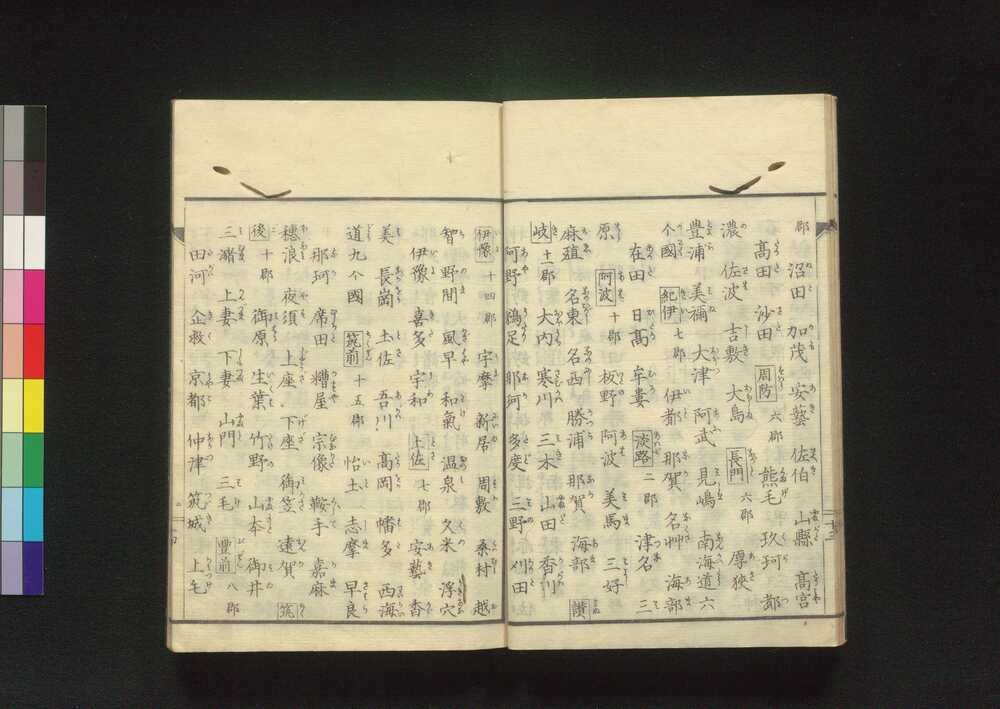 郡 沼田 加茂 安藝 佐伯 山縣 髙宮
髙田 沙田 周防 六郡 熊毛 玖珂 都
濃 佐波 吉敷 大島 長門 六郡 厚狹
豊浦 美禰 大津 阿武 見嶋 南海道六
个國 紀伊 七郡 伊都 那賀 名艸 海部
在田 日髙 牟婁 淡路 二郡 津名 三
原 阿波 十郡 板野 阿波 美馬 三好
麻殖 名東 名西 勝浦 那賀 海部 讃
岐 十一郡 大内 寒川 三木 山田 香川
阿野 鵜足 那珂 多度 三野 刈田
伊豫 十四郡 宇摩 新居 周敷 桑村 越
智 野間 風早 和氣 温泉 久米 浮穴
伊豫 喜多 宇和 土佐 七郡 安藝 香
美 長岡 土佐 吾川 髙岡 幡多 西海
道九个國 筑前 十五郡 怡土 志摩 早良
那珂 席田 糟屋 宗像 鞍手 嘉麻
穂浪 夜須 上座 下座 御笠 遠賀 筑
後 十郡 御原 生葉 竹野 山本 御井
三瀦 上妻 下妻 山門 三毛 豊前 八郡
田河 企救 京都 仲津 筑城 上毛